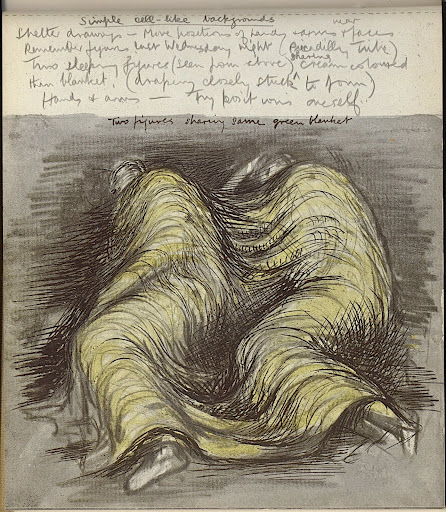 Simple cell-like backgrounds
Shelter drawings – More positions of hands & arms & faces near
Remember figures last Wednesday night (Piccadilly Tube)
Two sleeping figures (seen from above) sharing cream coloured
thin blanket, (draping closely stuck to form)
Hands & arms – Try positions oneself.
Two figures sharing same green blanket